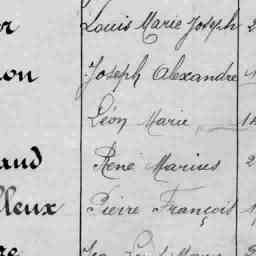 r Louis Marie Joseph 2
on Joseph Alexandre
Léon Marie 14
aud René Marius 2
lleux Pierre François